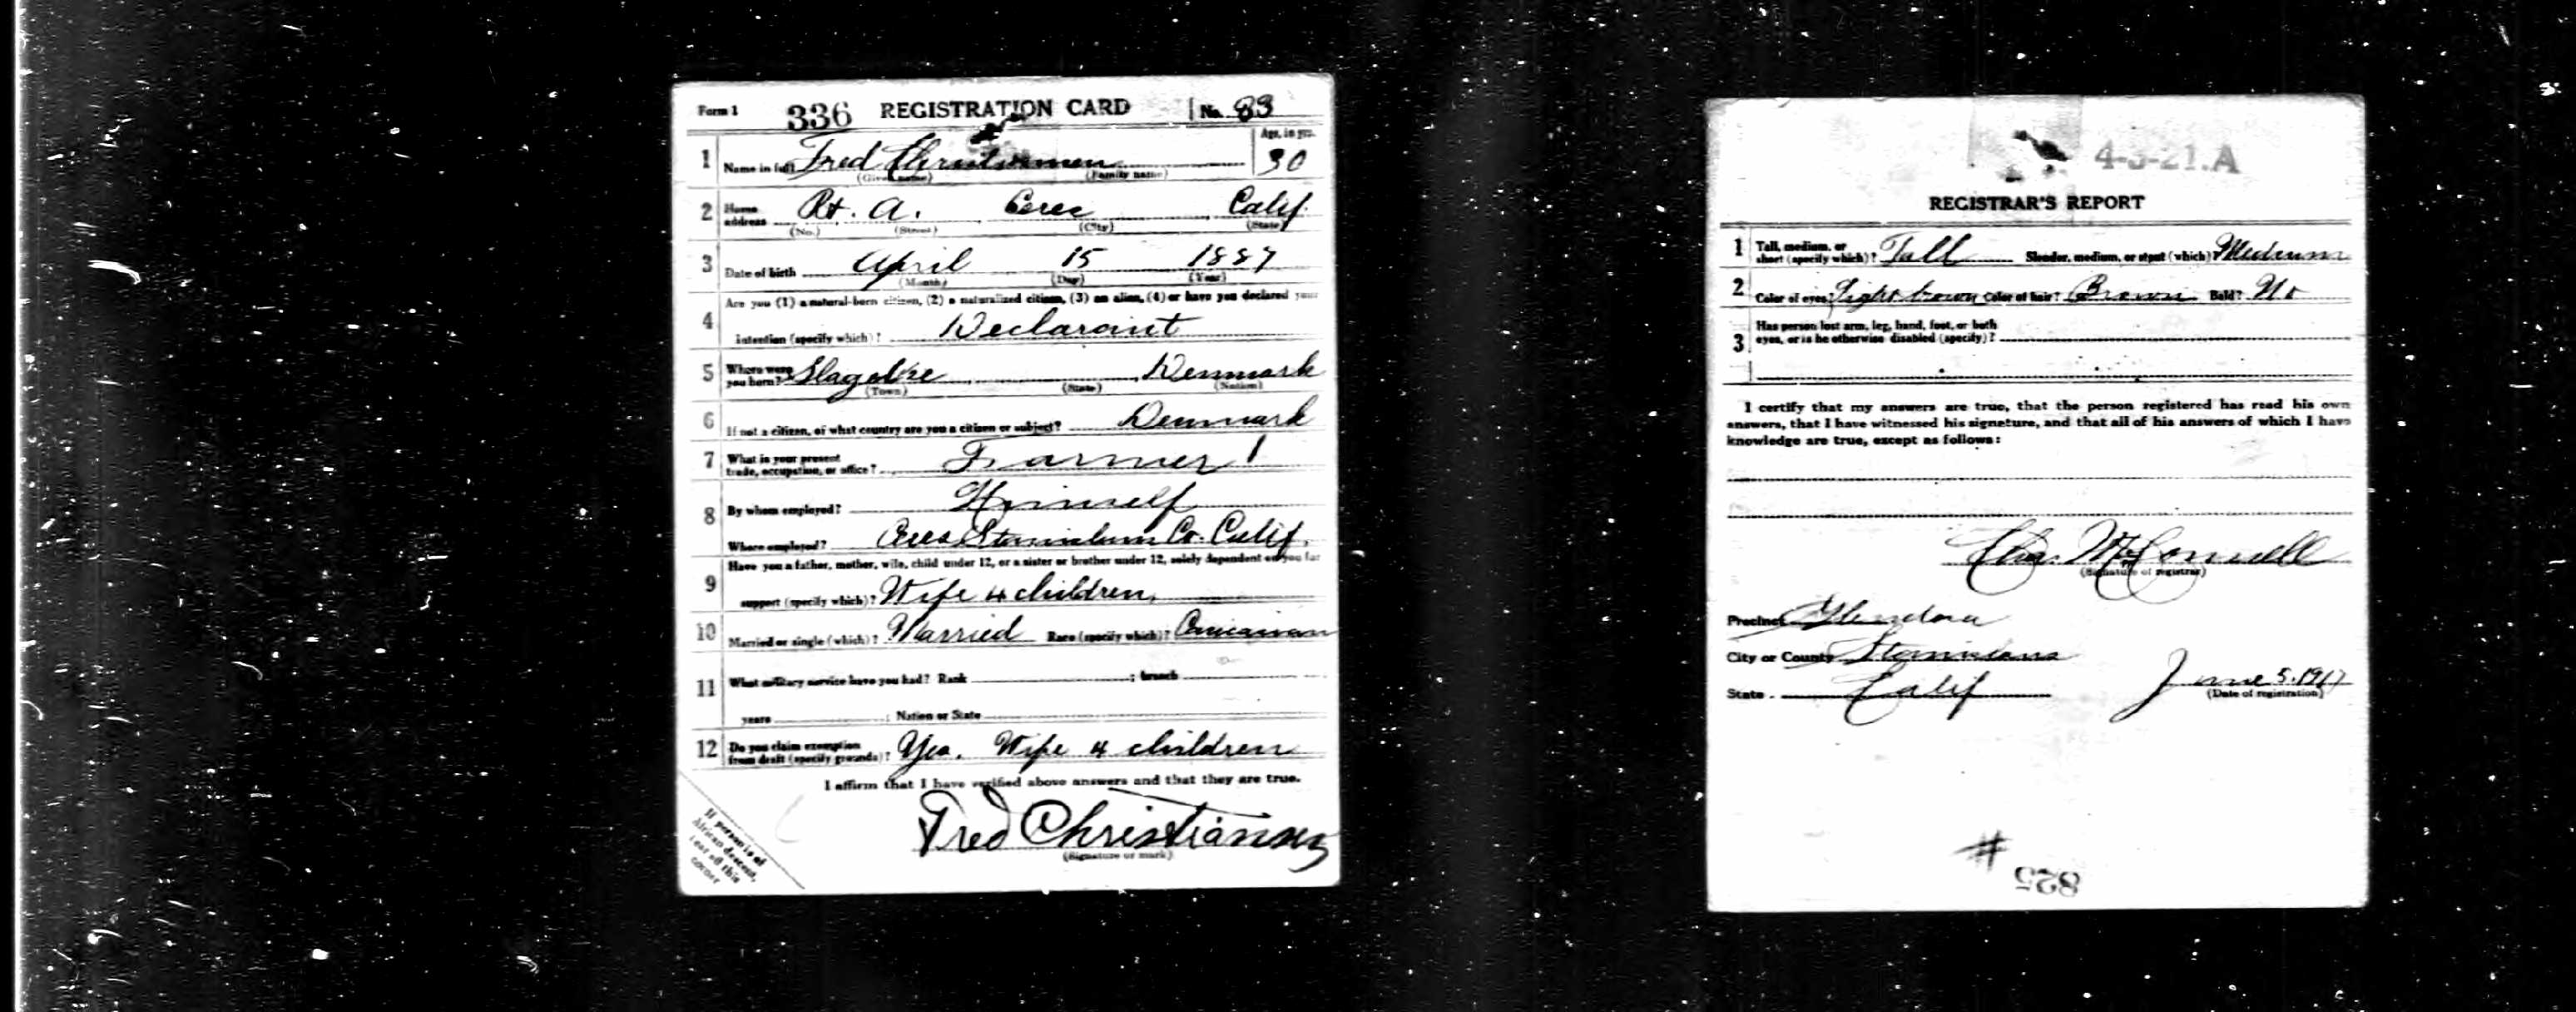 Form 1 336 REGISTRATION CARD No. 83
1 Name in full Fred Christiansen Age, in yrs. 30
(Given name) (Family name)
2 Home address Rt. A. Ceres Calif.
(No.) (Street) (City) (State)
3 Date of birth April 15 1887
(Month) (Day) (Year)
4 Are you (1) a natural-born citizen, (2) a naturalized citizen, (3) an alien, (4) or have you declared your
intention (specify which)? Declarant
5 Where were you born? Slagelse Denmark
(Town) (State) (Nation)
6 If not a citizen, of what country are you a citizen or subject? Denmark
7 What is your present trade, occupation, or office? Farmer
8 By whom employed? Himself
Where employed? Ceres Stanislaus Co. Calif.
9 Have you a father, mother, wife, child under 12, or a sister or brother under 12, solely dependent on you for
support (specify which)? Wife 4 children
10 Married or single (which)? Married Race (specify which)? Caucasian
11 What military service have you had? Rank ; branch
years ; Nation or State
12 Do you claim exemption from draft (specify grounds)? Yes. Wife 4 children
I affirm that I have verified above answers and that they are true.
Fred Christiansen
(Signature or mark)
If person is of
African descent,
tear off this
corner
4-3-21.A
REGISTRAR'S REPORT
1 Tall, medium, or short (specify which)? Tall Slender, medium, or stout (which)? Medium
2 Color of eyes? Light brown Color of hair? Brown Bald? No
3 Has person lost arm, leg, hand, foot, or both
eyes, or is he otherwise disabled (specify)?
I certify that my answers are true, that the person registered has read his own
answers, that I have witnessed his signature, and that all of his answers of which I have
knowledge are true, except as follows:
McConnell
(Signature of registrar)
Precinct Glendora
City or County Stanislaus
State Calif June 5, 1917
(Date of registration)
#
825